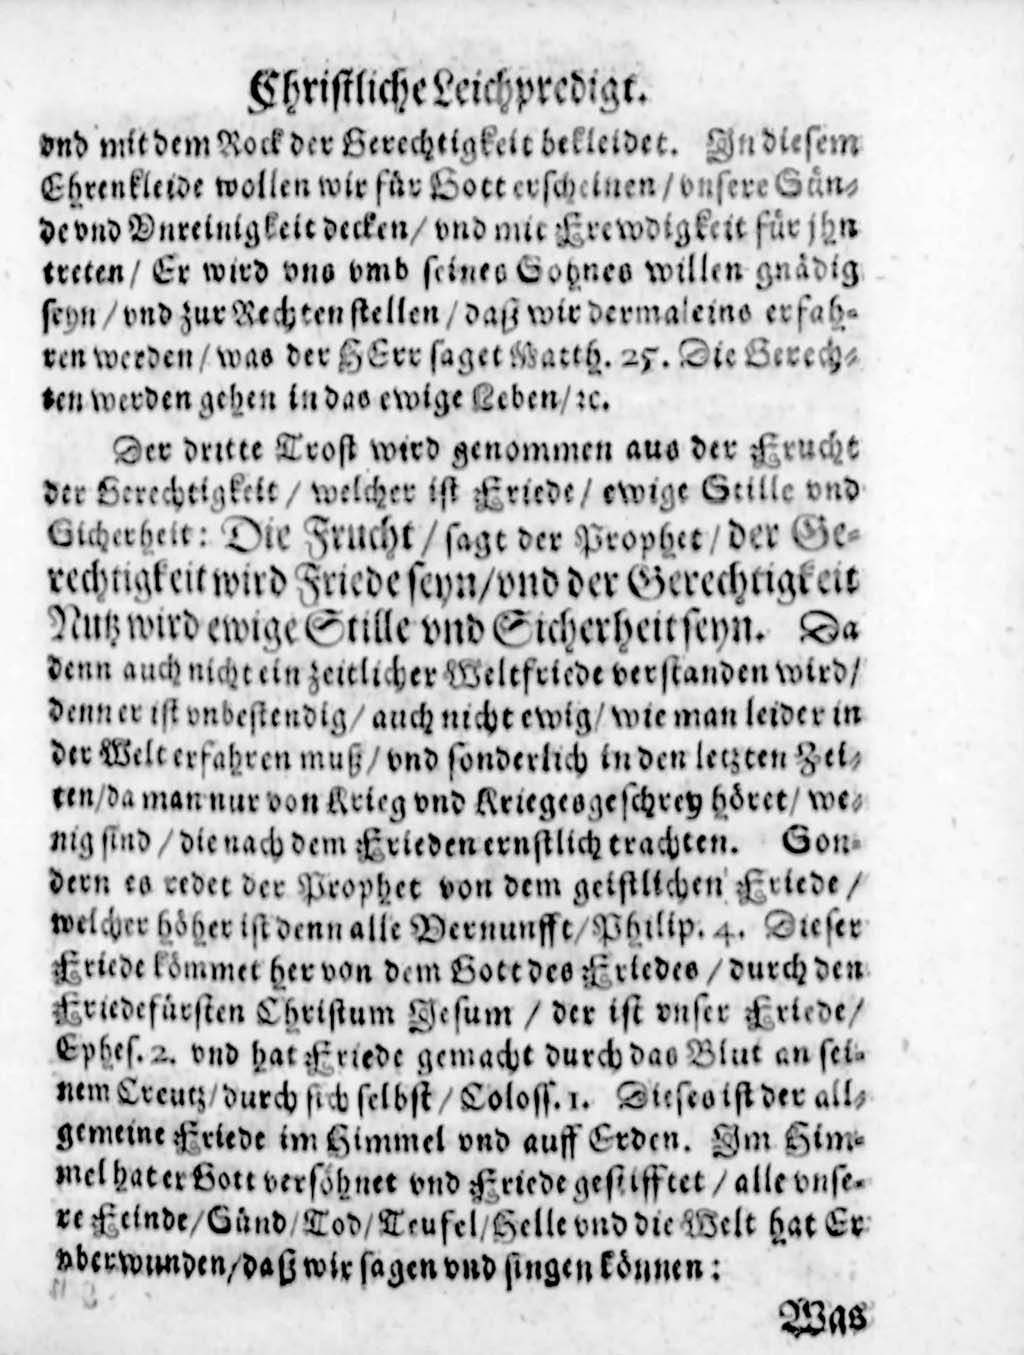 Christliche Leichpredigt.
vnd mit dem Rock der Gerechtigkeit bekleidet. In diesem
Ehrenkleide wollen wir für Gott erscheinen / vnsere Sün-
de vnd Vnreinigkeit decken / vnd mit Frewdigkeit für jhn
treten / Er wird vns vmb seines Sohnes willen gnädig
seyn / vnd zur Rechten stellen / daß wir dermaleins erfah-
ren werden / was der HErr saget Matth. 25. Die Gerech-
ten werden gehen in das ewige Leben / ꝛc.
Der dritte Trost wird genommen aus der Frucht
der Gerechtigkeit / welcher ist Friede / ewige Stille vnd
Sicherheit: Die Frucht / sagt der Prophet / der Ge-
rechtigkeit wird Friede seyn / vnd der Gerechtigkeit
Nutz wird ewige Stille vnd Sicherheit seyn. Da
denn auch nicht ein zeitlicher Weltfriede verstanden wird /
denn er ist vnbestendig / auch nicht ewig / wie man leider in
der Welt erfahren muß / vnd sonderlich in den letzten Zei-
ten / da man nur von Krieg vnd Kriegesgeschrey höret / we-
nig sind / die nach dem Frieden ernstlich trachten. Son-
dern es redet der Prophet von dem geistlichen Friede /
welcher höher ist denn alle Vernunfft / Philip. 4. Dieser
Friede kömmet her von dem Gott des Friedes / durch den
Friedefürsten Christum Jesum / der ist vnser Friede /
Ephes. 2. vnd hat Friede gemacht durch das Blut an sei-
nem Creutz / durch sich selbst / Coloss. 1. Dieses ist der all-
gemeine Friede im Himmel vnd auff Erden. Im Him-
mel hat er Gott versöhnet vnd Friede gestifftet / alle vnse-
re Feinde / Sünd / Tod / Teufel / Helle vnd die Welt hat Er
vberwunden / daß wir sagen vnd singen können:
Was